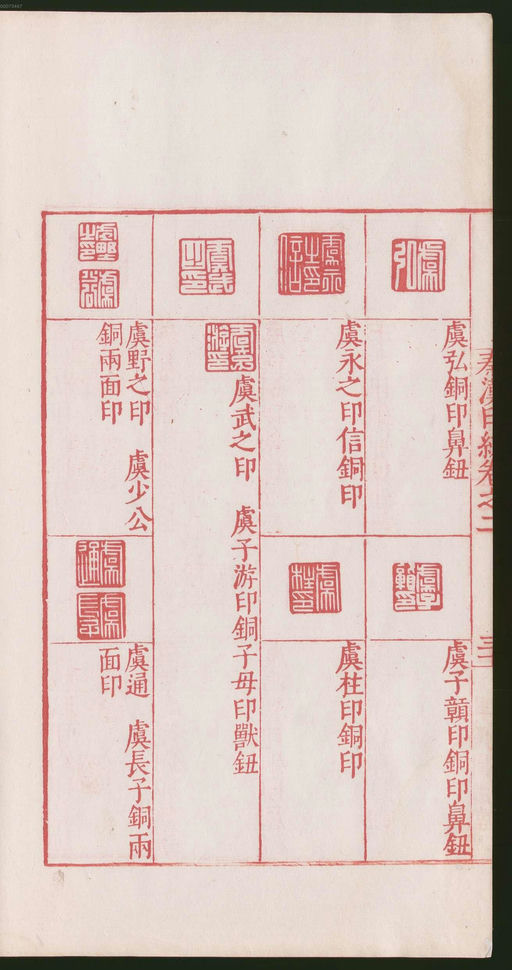 秦漢印統卷之二
虞弘銅印鼻鈕
虞子贛印銅印鼻鈕
虞永之印信銅印
虞柱印銅印
虞武之印 虞子游印銅子母印獸鈕
虞野之印 虞少公
銅兩面印
虞通 虞長子銅兩
面印